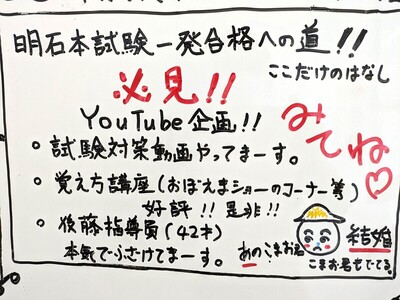 明石本試験一発合格への道!!
ここだけのはなし
必見!!
YouTube企画!!
みてね♡
。試験対策動画やってまーす。
。覚え方講座(おぼえまショーのコーナー等)
好評!!是非!!
。後藤指導員(42才)
本気でふざけてまーす。
あのこまお君
結婚
こまお君もでてる。